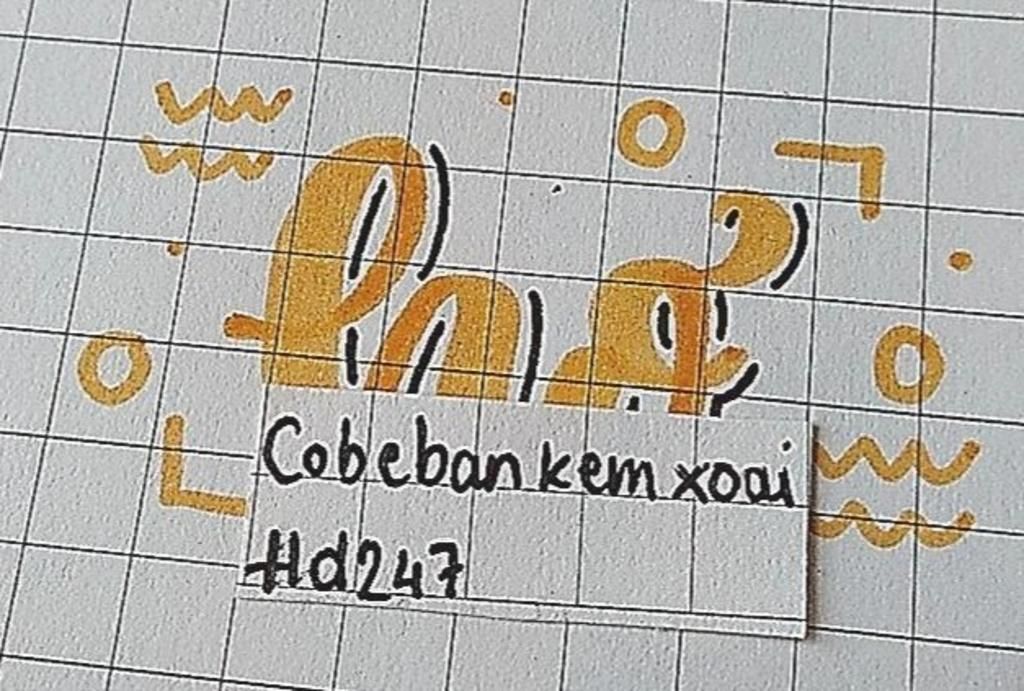 Cobeban kem xoai
Hd247